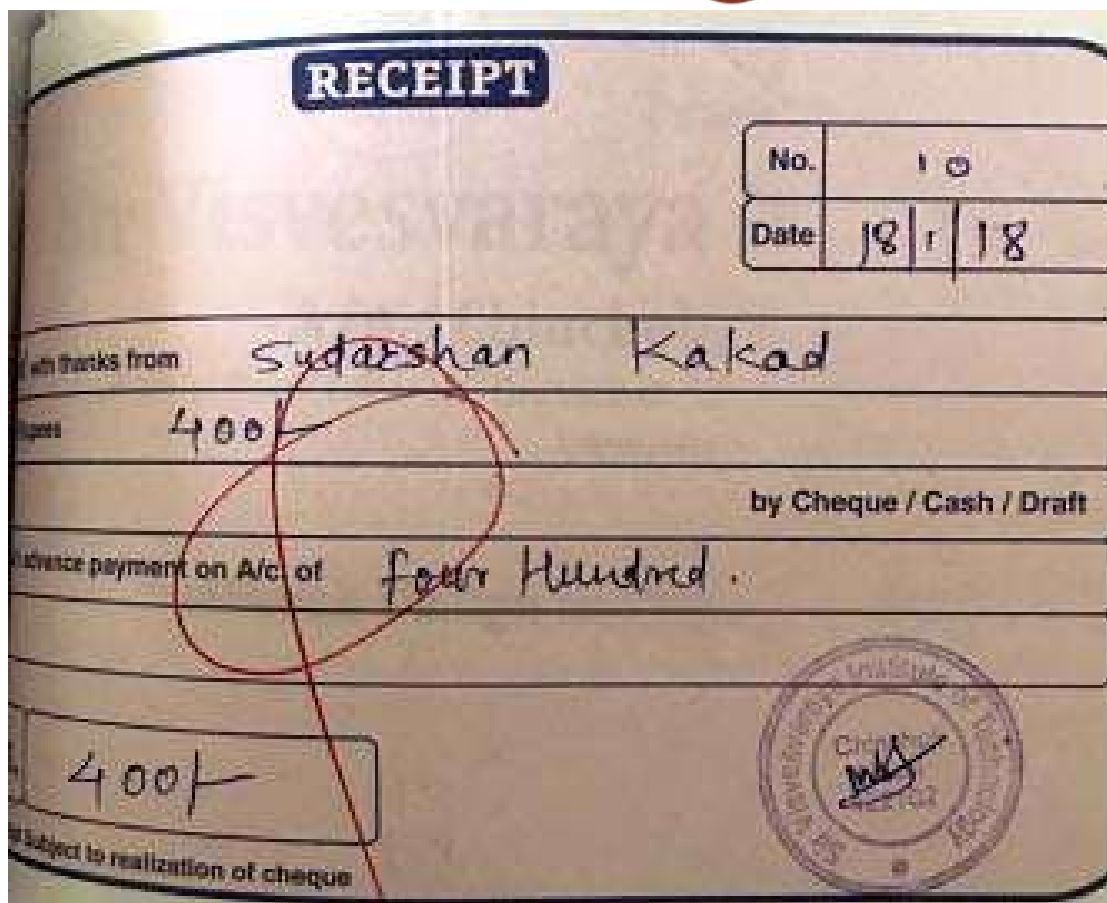 RECEIPT
No. 10
Date 18/1/18
with thanks from Sudarshan Kakad
400/-
by Cheque / Cash / Draft
advance payment on A/c. of four Hundred.
400/-
subject to realization of cheque
Institute of Technology